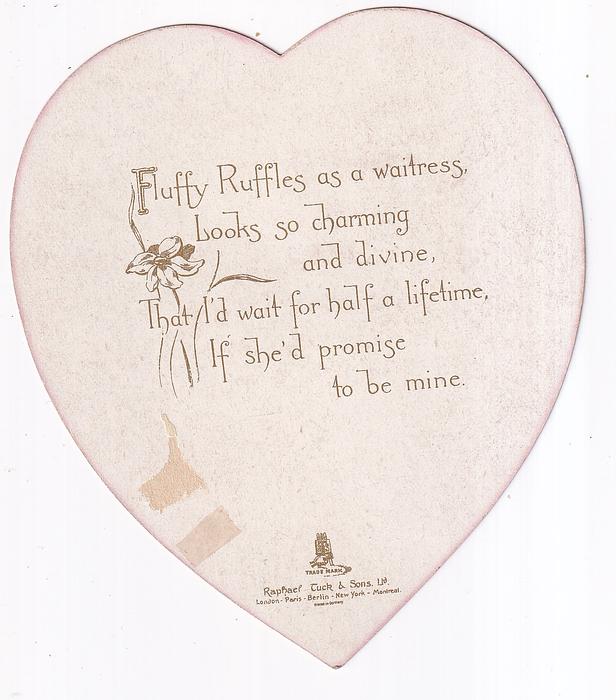 Fluffy Ruffles as a waitress,
Looks so charming
and divine,
That I'd wait for half a lifetime,
If she'd promise
to be mine.
TRADE MARK
Raphael Tuck & Sons, Ltd.
London - Paris - Berlin - New York - Montreal.